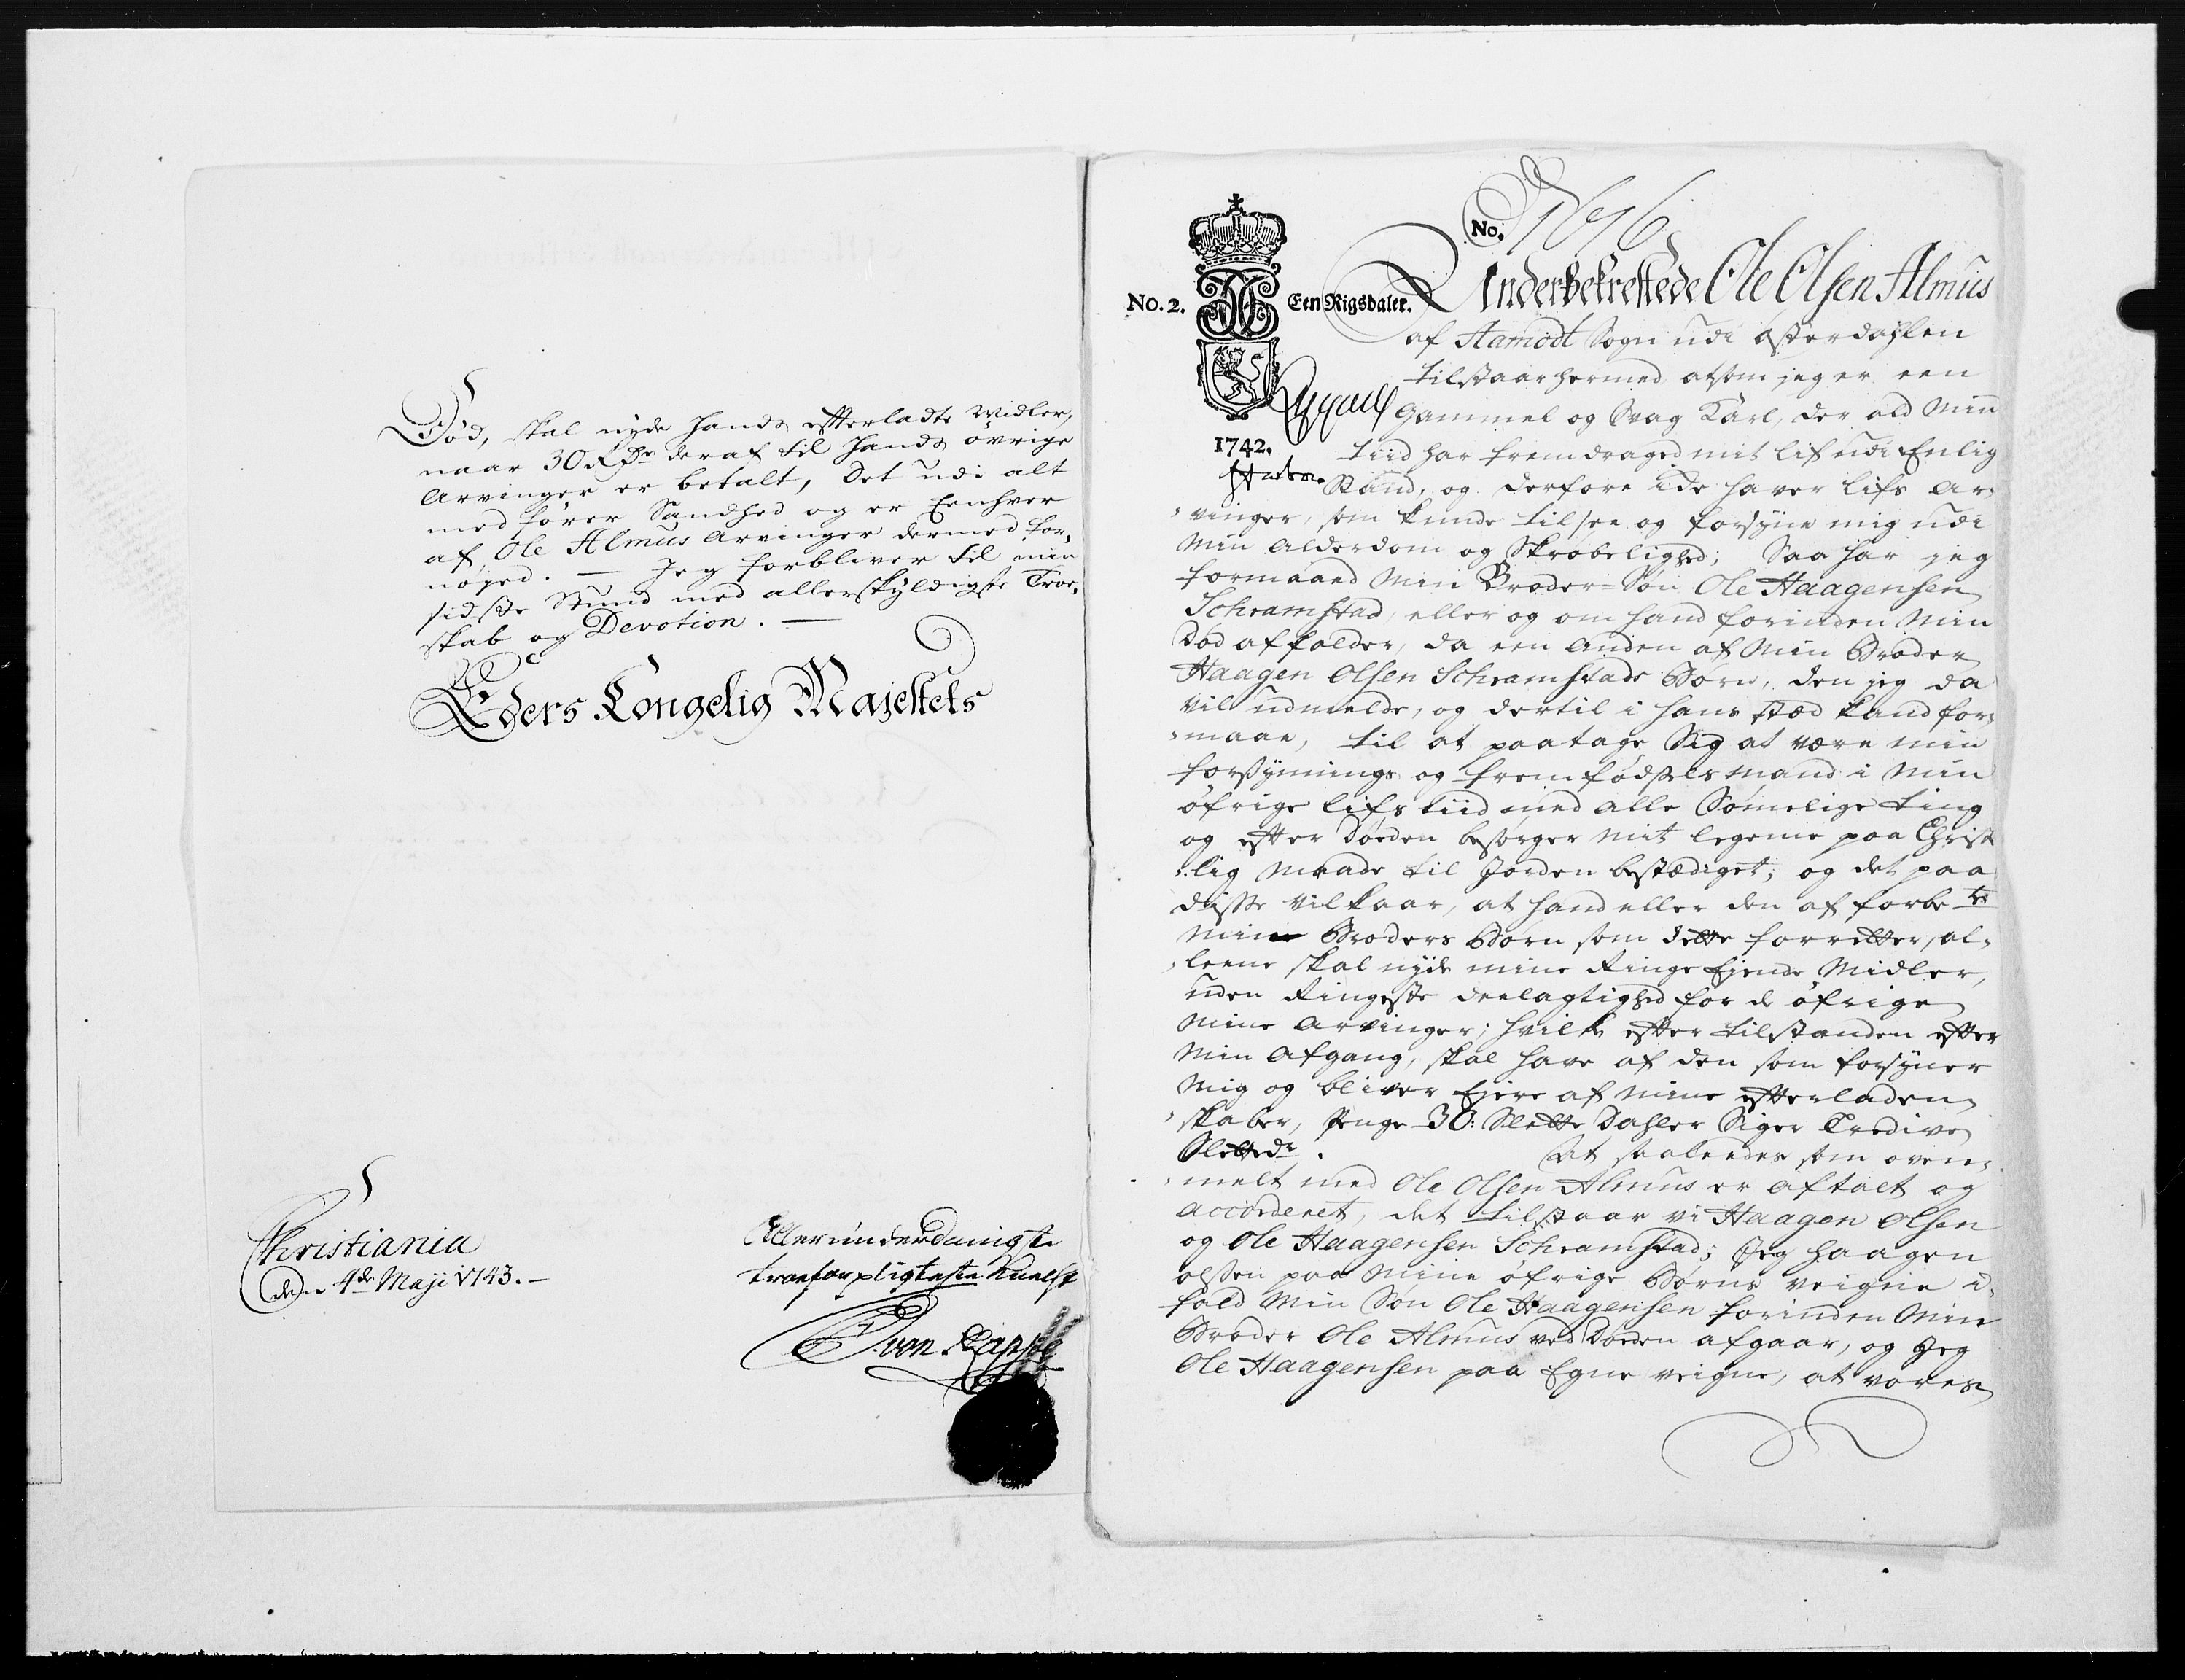 Død, skal nyde hands efterladte Midler,
naar 30 Rdr deraf til hands øvrige
Arvinger er betalt, Det udi alt
medfører Sandhed og er Eenhver
af Ole Almüs Arvinger dermed for¬
nøyed. — Jeg forbliver til min
sidste Stund med allerskyldigste Troe¬
skab og Devotion. —
Eders Kongelig Majestets
Christiania
den 4de Maji 1743. —
Allerunderdanigste
troepligtigste Knecht
von Rappe
No. 1676
No. 2. Een Rigsdaler.
1742.
Underskrefne Ole Olsen Almüs
af Aamodt Sogn udi Østerdahlen
tilstaar hermed at som jeg er een
Gammel og Svag Karl, der ald Min
tiid har fremdraged mit lif udi Enlig
Stand, og derfore icke haver lifs Ar¬
vinger, som kunde tilsee og forsyne mig udi
Min Alderdom og Skrøbelighed; Saa har jeg
formaaed Min Broder-Søn Ole Haagensen
Schramstad, eller og om hand forinden Min
Død affalder, da een Anden af Min Broder
Haagen Olsen Schramstads Børn, den jeg da
vil udmelde, og dertil i hans stæd kand for¬
maae, til at paatage Sig at være min
forsynings og fremfødsels Mand i Min
øfrige lifs tiid med alle Sømmelige ting
og efter Døden besørger Mit legeme paa Christ¬
lig Maade til Jorden bestædiget; og det paa
disse Vilkaar, at hand eller den af forbete
Min Broders Børn som dette forretter, al¬
leene skal nyde mine Ringe Ejende Midler,
uden Ringeste deelagtighed for de øfrige
Mine Arvinger; hvilke efter tilstanden efter
Min Afgang, skal have af den som forsyner
Mig og bliver Ejere af Mine efterladen¬
skaber, Penge 30: Slette Dahler Siger Tredive
Slettedr. At saaledes som oven¬
melt med Ole Olsen Almüs er aftalt og
accorderet, det tilstaar vi Haagen Olsen
og Ole Haagensen Schramstad; Jeg Haagen
Olsen paa Mine øfrige Børns veigne i¬
fald Min Søn Ole Haagensen forinden Min
Broder Ole Almüs ved Døden afgaar, og Jeg
Ole Haagensen paa Egne veigne, at vores